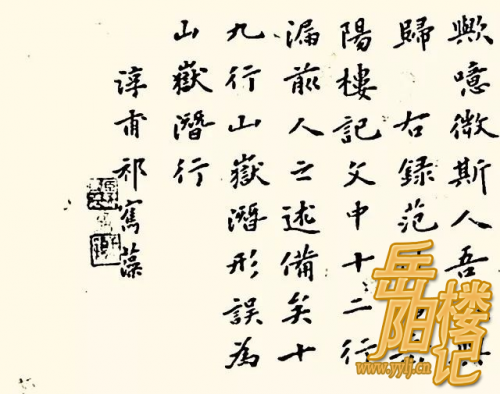 歟噫微斯人吾
歸 右録范
陽樓記文中十二行
漏前人之述備矣十
九行山嶽潛形誤為
山嶽潛行
淳甫祁寯藻
岳阳楼记
www.yylj.cn